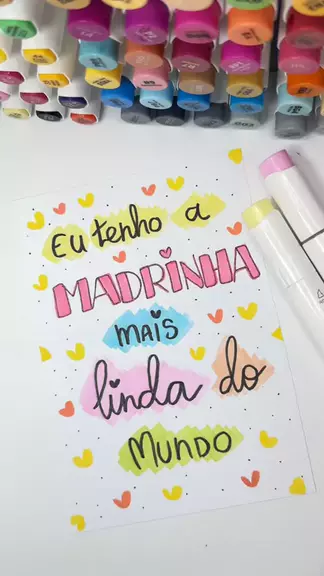 Eu tenho a
MADRINHA
MAIS
linda do
MUNDO